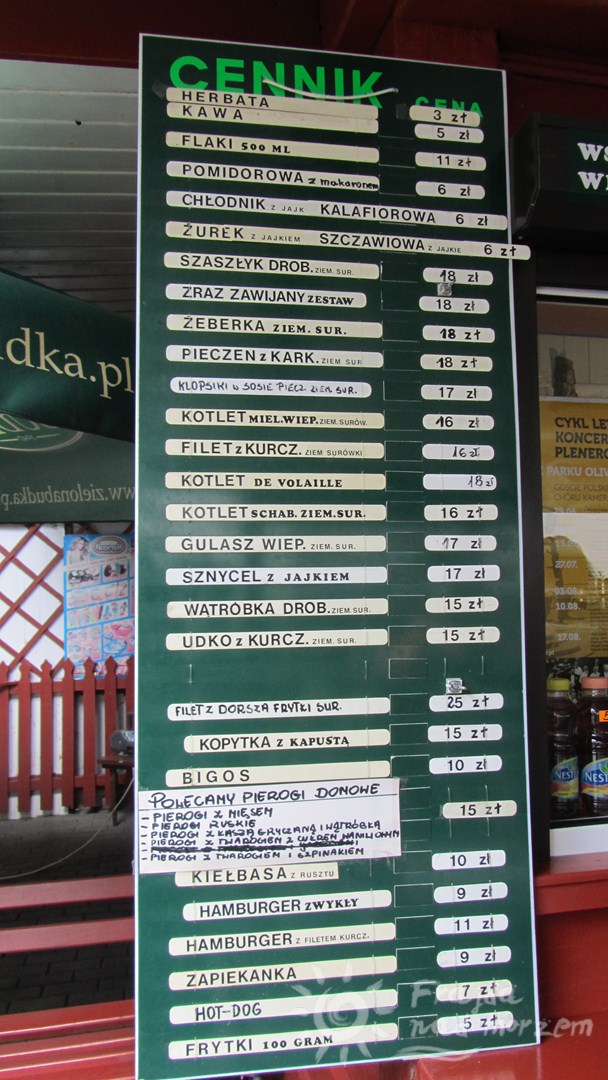 CENNIK CENA
HERBATA 3 zł
KAWA 5 zł
FLAKI 500 ML 11 zł
POMIDOROWA z makaronem 6 zł
CHŁODNIK z JAJK KALAFIOROWA 6 zł
ŻUREK z JAJKIEM SZCZAWIOWA z JAJKIE 6 zł
SZASZŁYK DROB. ZIEM. SUR. 18 zł
ZRAZ ZAWIJANY ZESTAW 18 zł
ŻEBERKA ZIEM. SUR. 18 zł
PIECZEN z KARK. ZIEM SUR 18 zł
KLOPSIKI W SOSIE PIECZ. ZIEM. SUR. 17 zł
KOTLET MIEL.WIEP. ZIEM. SURÓW. 16 zł
FILET z KURCZ. ZIEM SURÓWKI 16 zł
KOTLET DE VOLAILLE 18 zł
KOTLET SCHAB. ZIEM. SUR. 16 zł
GULASZ WIEP. ZIEM. SUR. 17 zł
SZNYCEL z JAJKIEM 17 zł
WATRÓBKA DROB. ZIEM. SUR. 15 zł
UDKO z KURCZ. ZIEM. SUR. 15 zł
FILET Z DORSZA FRYTKI SUR. 25 zł
KOPYTKA z KAPUSTĄ 15 zł
BIGOS 10 zł
POLECAMY PIEROGI DONOWE
- PIEROGI Z MIĘSEM 15 zł
- PIEROGI RUSKIE
- PIEROGI Z KASZĄ GRYCZANĄ I WĄTRÓBKĄ
- PIEROGI Z TWAROGIEM Z CUKREM WANILIOWYM
- PIEROGI Z TWAROGIEM I SZPINAKIEM
KIEŁBASA z RUSZTU 10 zł
HAMBURGER ZWYKŁY 9 zł
HAMBURGER z FILETEM KURCZ. 11 zł
ZAPIEKANKA 9 zł
HOT-DOG 7 zł
FRYTKI 100 GRAM 5 zł
Frajda
nad morzem
udka.pl
www.zielonabudka.p
WS
WI
CYKL LE
KONCER
PLENERO
PARKU OLIV
27.07.
03.08
10.08.
17.08.
NEST
NEST